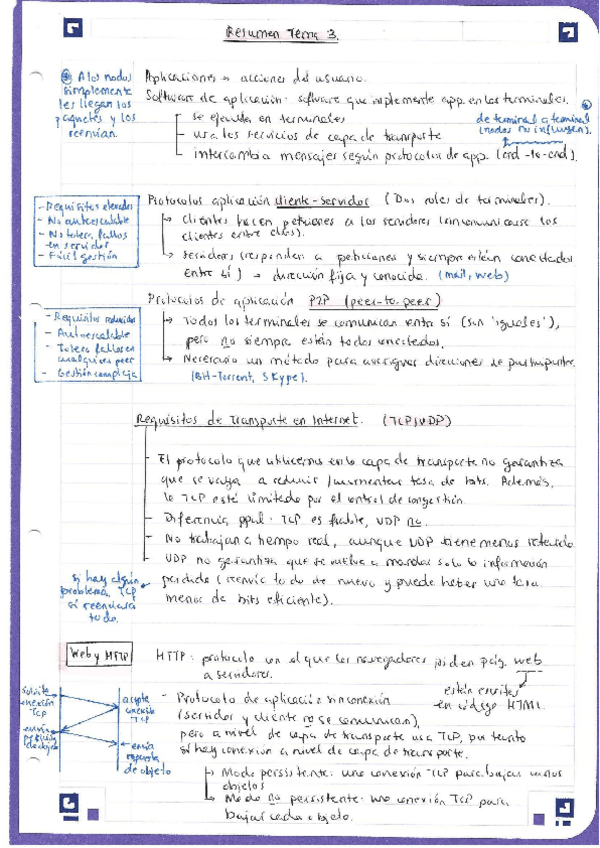 Resumen Tema 3.
* A los nodos
simplemente
les llegan los
paquetes y los
reenvían.
Aplicaciones → acciones del usuario.
Software de aplicación: software que implementa app. en los terminales.
- se ejecuta en terminales
- usa los servicios de capa de transporte
- intercambia mensajes según protocolos de app. (end-to-end).
de terminal a terminal
(nodos no influyen).
- Requisitos elevados
- No autoescalable
- No tolera fallos
en servidor
- Fácil gestión
Protocolos aplicación cliente-servidor (Dos roles de terminales).
→ clientes hacen peticiones a los servidores (sin comunicarse los
clientes entre ellos).
→ servidores (responden a peticiones y siempre están conectados
entre sí) → dirección fija y conocida. (mail, web)
- Requisitos reducidos
- Autoescalable
- Tolera fallos en
cualquier peer
- Gestión compleja
Protocolos de aplicación P2P (peer-to-peer)
→ Todos los terminales se comunican entre sí (son 'iguales'),
pero no siempre están todos conectados.
→ Necesario un método para averiguar direcciones de
(Bit-Torrent, Skype).
Requisitos de Transporte en Internet. (TCP/UDP)
- El protocolo que utilicemos en la capa de transporte no garantiza
que se vaya a reducir/aumentar tasa de bits. Además,
la TCP está limitada por el control de congestión.
- Diferencia ppal: TCP es fiable, UDP no.
- No trabajan a tiempo real, aunque UDP tiene menos retardo.
- UDP no garantiza que se vuelva a mandar solo la información
perdida (reenvía todo de nuevo y puede haber una tasa
menos de bits eficiente).
si hay algún
problema, TCP
sí reenviará
todo.
Web y HTTP
HTTP: protocolo con el que los navegadores piden pág. web
a servidores.
están escritas
en código HTML.
- Protocolo de aplicación sin conexión
(servidor y cliente no se comunican),
pero a nivel de capa de transporte usa TCP, por tanto
sí hay conexión a nivel de capa de transporte.
→ Modo persistente: una conexión TCP para bajar varios
objetos
→ Modo no persistente: una conexión TCP para
bajar cada objeto.
solicita
conexión
TCP
acepta
conexión
TCP
envía
petición
de objeto
envía
respuesta
de objeto